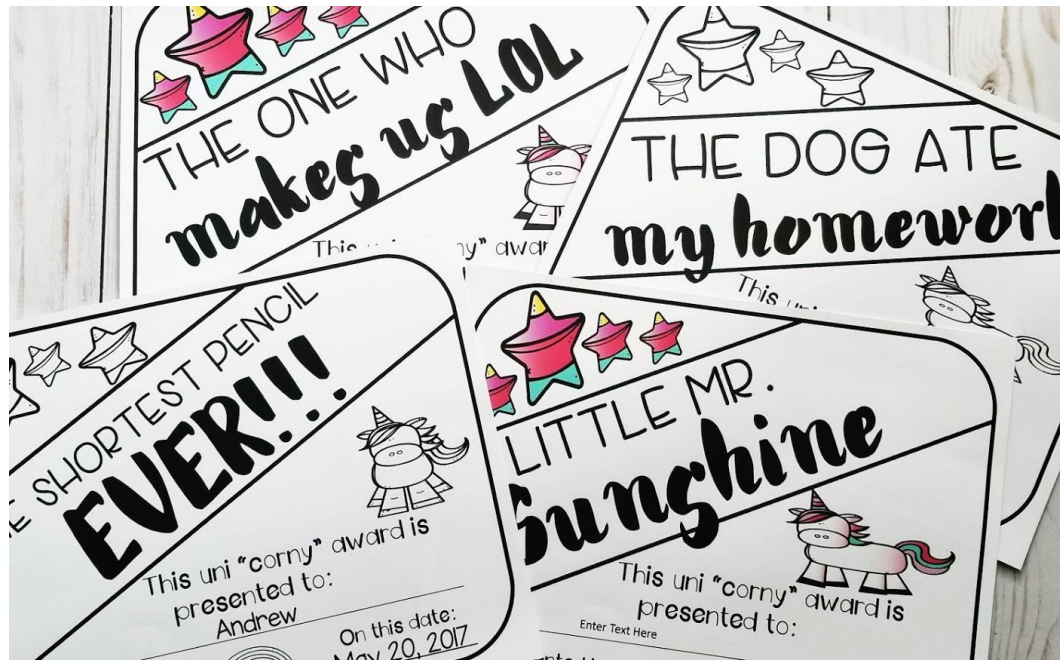 THE ONE WHO
makes us LOL
This
award
THE DOG ATE
my homework
This
SHORTEST PENCIL
EVER!!!
This uni “corny” award is
presented to:
Andrew
On this date:
May 20, 2017
LITTLE MR.
Sunshine
This uni “corny” award is
presented to:
Enter Text Here